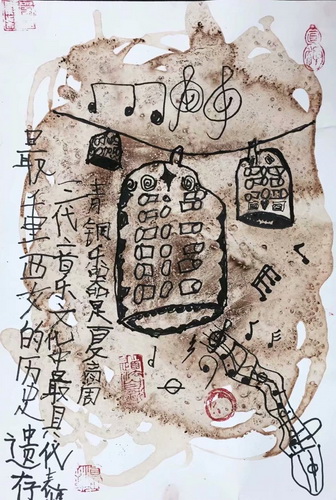 青铜乐器是夏商周
三代音乐文化中最具代表
最重要的历史遗存